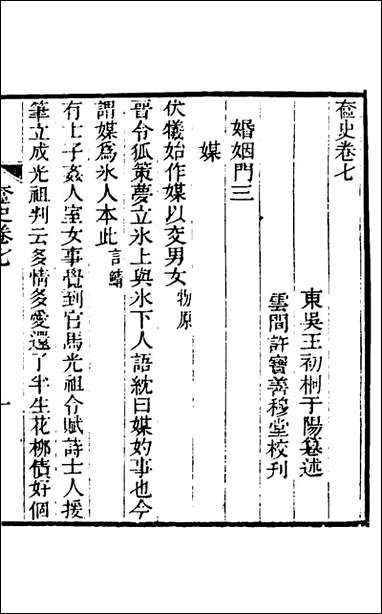 奩史卷七
東吳王初桐于陽纂述
雲間許寶善穆堂校刊
婚姻門三
媒
伏犧始作媒以交男女物原
晉令狐策夢立氷上與氷下人語紞曰媒妁事也今
謂媒爲氷人本此言鯖
有士子姦人室女事覺到官馬光祖令賦詩士人援
筆立成光祖判云多情多愛還了半生花柳債好個
奩史卷七
一